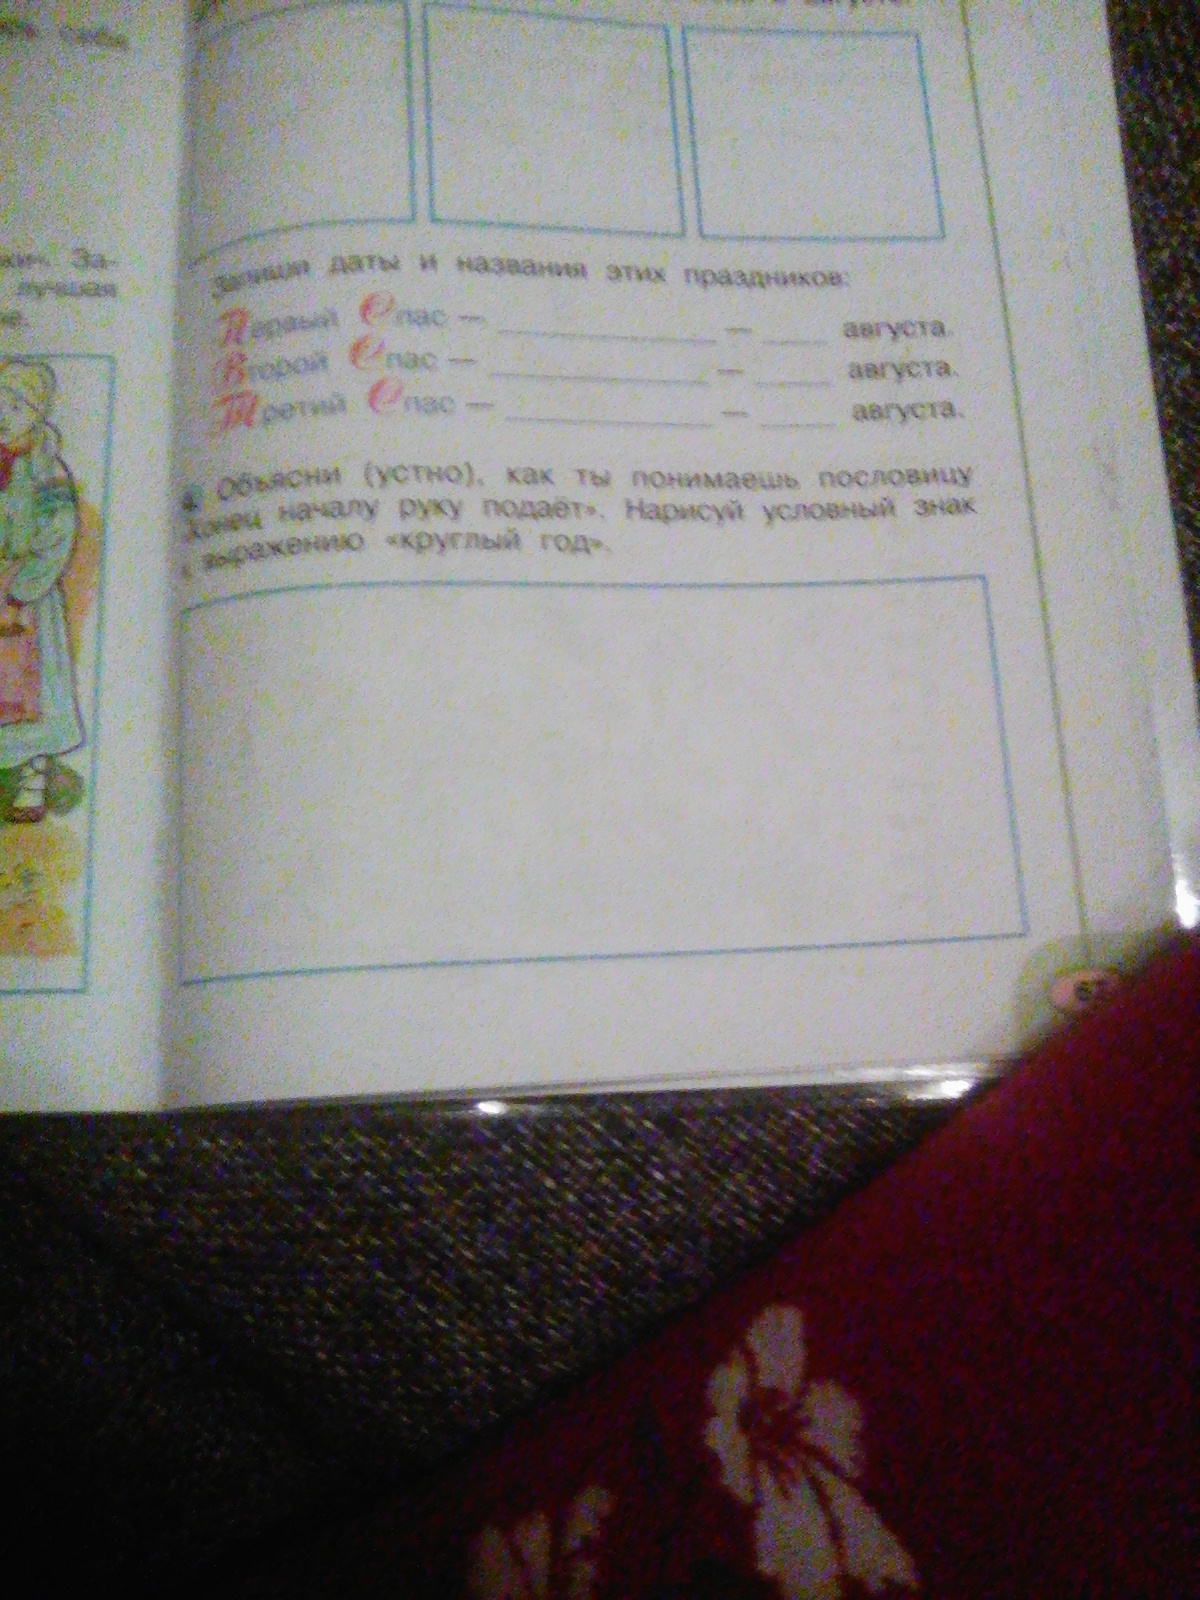 августа.
За-
лучшая
Запиши даты и названия этих праздников:
Первый Спас — ____ — ____ августа.
Второй Спас — ____ — ____ августа.
Третий Спас — ____ — ____ августа.
4. Объясни (устно), как ты понимаешь пословицу
«Конец началу руку подаёт». Нарисуй условный знак
к выражению «круглый год».